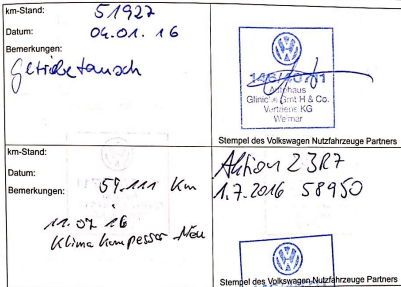 km-Stand: 51927
Datum: 04.01.16
Bemerkungen:
Getriebetausch
Autohaus
Glinicke GmbH & Co.
Vertriebs KG
Weimar
Stempel des Volkswagen Nutzfahrzeuge Partners
km-Stand:
Datum:
Bemerkungen: 59.111 Km
11.07.16
Klima Kompessor Neu
Aktion 23R7
1.7.2016 58950
Stempel des Volkswagen Nutzfahrzeuge Partners